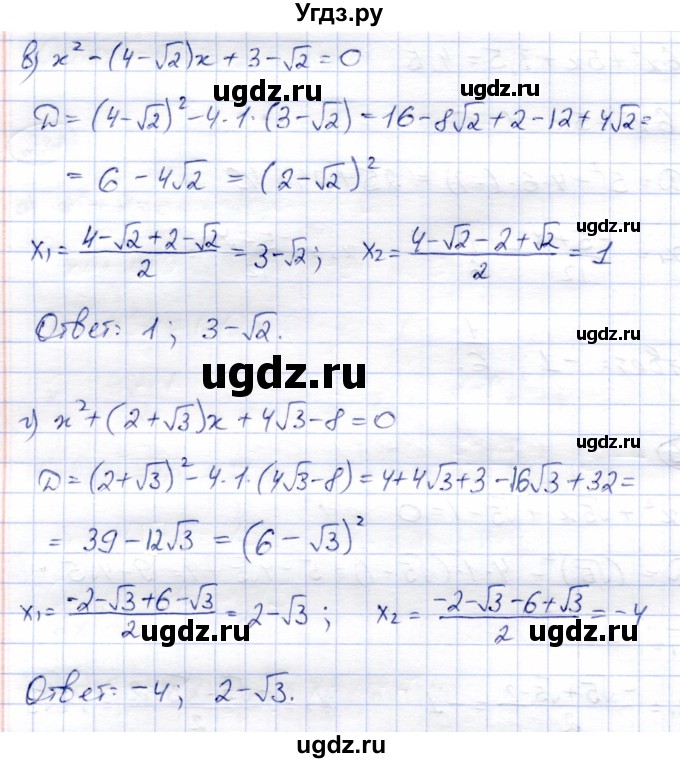 Угдз.ру
в) x² − (4−√2)x + 3−√2 = 0
ugdz.ru
ugdz.ru
D = (4−√2)² − 4·1·(3−√2) = 16 − 8√2 + 2 − 12 + 4√2 =
= 6 − 4√2 = (2−√2)²
ugdz.ru
x₁ = (4−√2+2−√2)/2 = 3−√2; x₂ = (4−√2−2+√2)/2 = 1
ugdz.ru
Ответ: 1; 3−√2.
ugdz.ru
ugdz.ru
г) x² + (2+√3)x + 4√3−8 = 0
ugdz.ru
D = (2+√3)² − 4·1·(4√3−8) = 4+4√3+3 −16√3 + 32 =
ugdz.ru
= 39 − 12√3 = (6 − √3)²
x₁ = (−2−√3+6−√3)/2 = 2−√3; x₂ = (−2−√3−6+√3)/2 = −4
ugdz.ru
ugdz.ru
Ответ: −4; 2−√3.
ugdz.ru
ugdz.ru